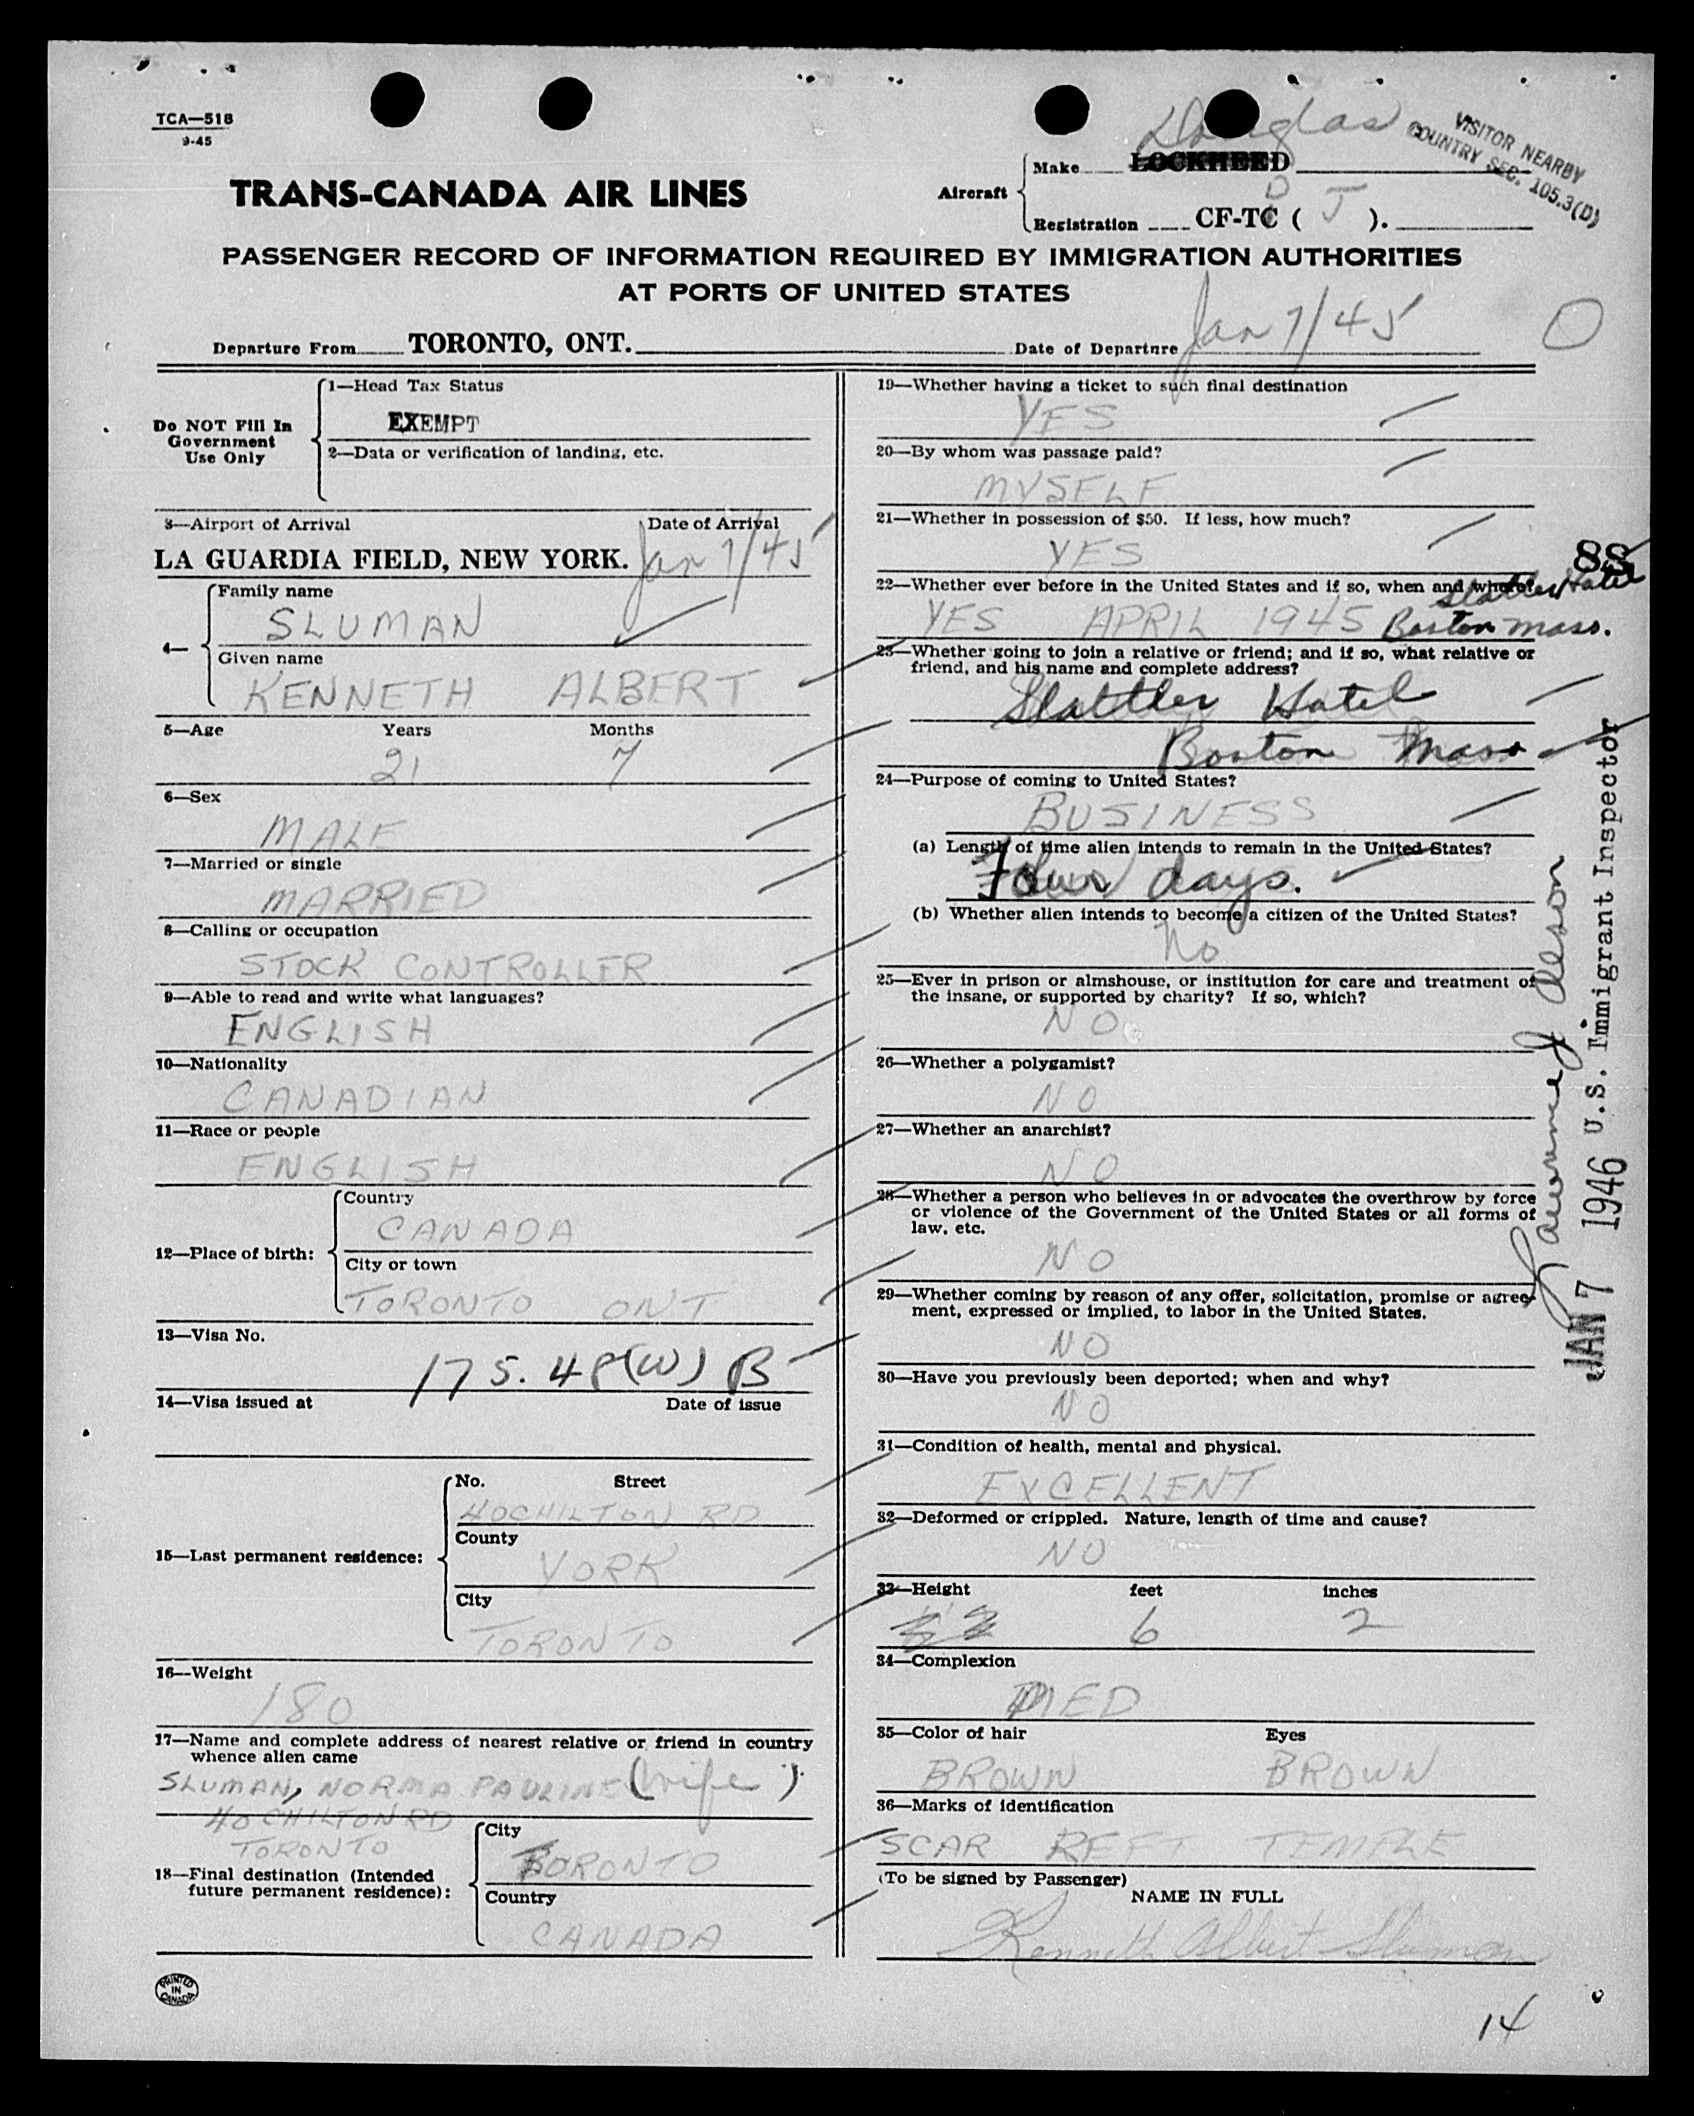 TCA—518
9-45
Douglas
VISITOR NEARBY
COUNTRY SEC. 105.3(D)
Aircraft
Make LOCKHEED
TRANS-CANADA AIR LINES
Registration CF-TC ( J ).
D
PASSENGER RECORD OF INFORMATION REQUIRED BY IMMIGRATION AUTHORITIES
AT PORTS OF UNITED STATES
Departure From TORONTO, ONT. Date of Departure Jan 7/45
O
Do NOT Fill In
Government
Use Only
1—Head Tax Status
EXEMPT
2—Data or verification of landing, etc.
3—Airport of Arrival Date of Arrival
LA GUARDIA FIELD, NEW YORK. Jan 7/45
4—
Family name
SLUMAN
Given name
KENNETH ALBERT
5—Age Years Months
21 7
6—Sex
MALE
7—Married or single
MARRIED
8—Calling or occupation
STOCK CONTROLLER
9—Able to read and write what languages?
ENGLISH
10—Nationality
CANADIAN
11—Race or people
ENGLISH
12—Place of birth:
Country
CANADA
City or town
TORONTO ONT
13—Visa No.
175.48(W) B
14—Visa issued at Date of issue
15—Last permanent residence:
No. Street
40 CHILTON RD
County
YORK
City
TORONTO
16—Weight
180
17—Name and complete address of nearest relative or friend in country
whence alien came
SLUMAN, NORMA PAULINE (wife)
40 CHILTON RD
TORONTO
18—Final destination (Intended
future permanent residence):
City
TORONTO
Country
CANADA
PRINTED
IN
CANADA
19—Whether having a ticket to such final destination
YES
20—By whom was passage paid?
MYSELF
21—Whether in possession of $50. If less, how much?
YES
88
22—Whether ever before in the United States and if so, when and where?
Statler Hotel
YES APRIL 1945 Boston Mass.
23—Whether going to join a relative or friend; and if so, what relative or
friend, and his name and complete address?
Slattler Hotel
Boston Mass
24—Purpose of coming to United States?
BUSINESS
(a) Length of time alien intends to remain in the United States?
Four days.
(b) Whether alien intends to become a citizen of the United States?
No
25—Ever in prison or almshouse, or institution for care and treatment of
the insane, or supported by charity? If so, which?
NO
26—Whether a polygamist?
NO
27—Whether an anarchist?
NO
28—Whether a person who believes in or advocates the overthrow by force
or violence of the Government of the United States or all forms of
law, etc.
NO
29—Whether coming by reason of any offer, solicitation, promise or agree-
ment, expressed or implied, to labor in the United States.
NO
30—Have you previously been deported; when and why?
NO
31—Condition of health, mental and physical.
EXCELLENT
32—Deformed or crippled. Nature, length of time and cause?
NO
33—Height feet inches
6 2
34—Complexion
MED
35—Color of hair Eyes
BROWN BROWN
36—Marks of identification
SCAR TEMPLE
(To be signed by Passenger)
NAME IN FULL
Kenneth Albert Sluman
14
JAN 7 1946 U.S. Immigrant Inspector